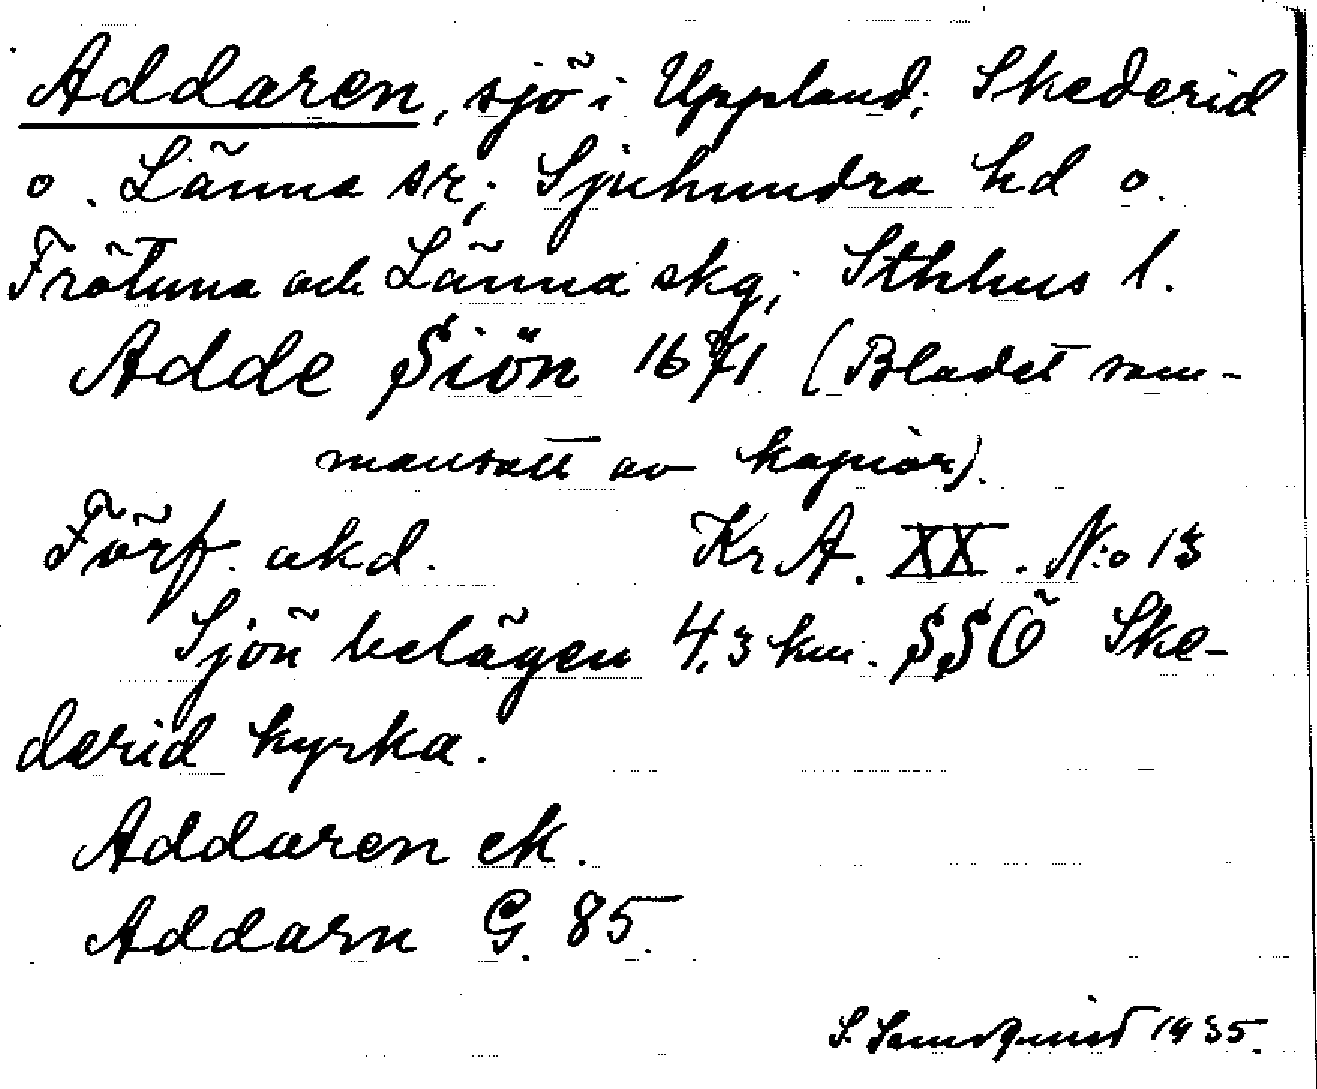 Addaren, sjö i Uppland; Skederid
o. Länna sr; Sjuhundra hd o.
Frötuna och Länna skg; Sthlms l.
Adde Siön 1671 (Bladet sam-
mansatt av kopior).
Förf. okd. Kr A. XX. N:o 13
Sjön belägen 4,3 km. SSÖ Ske-
derid kyrka.
Addaren ek.
Addarn G. 85.
1935.